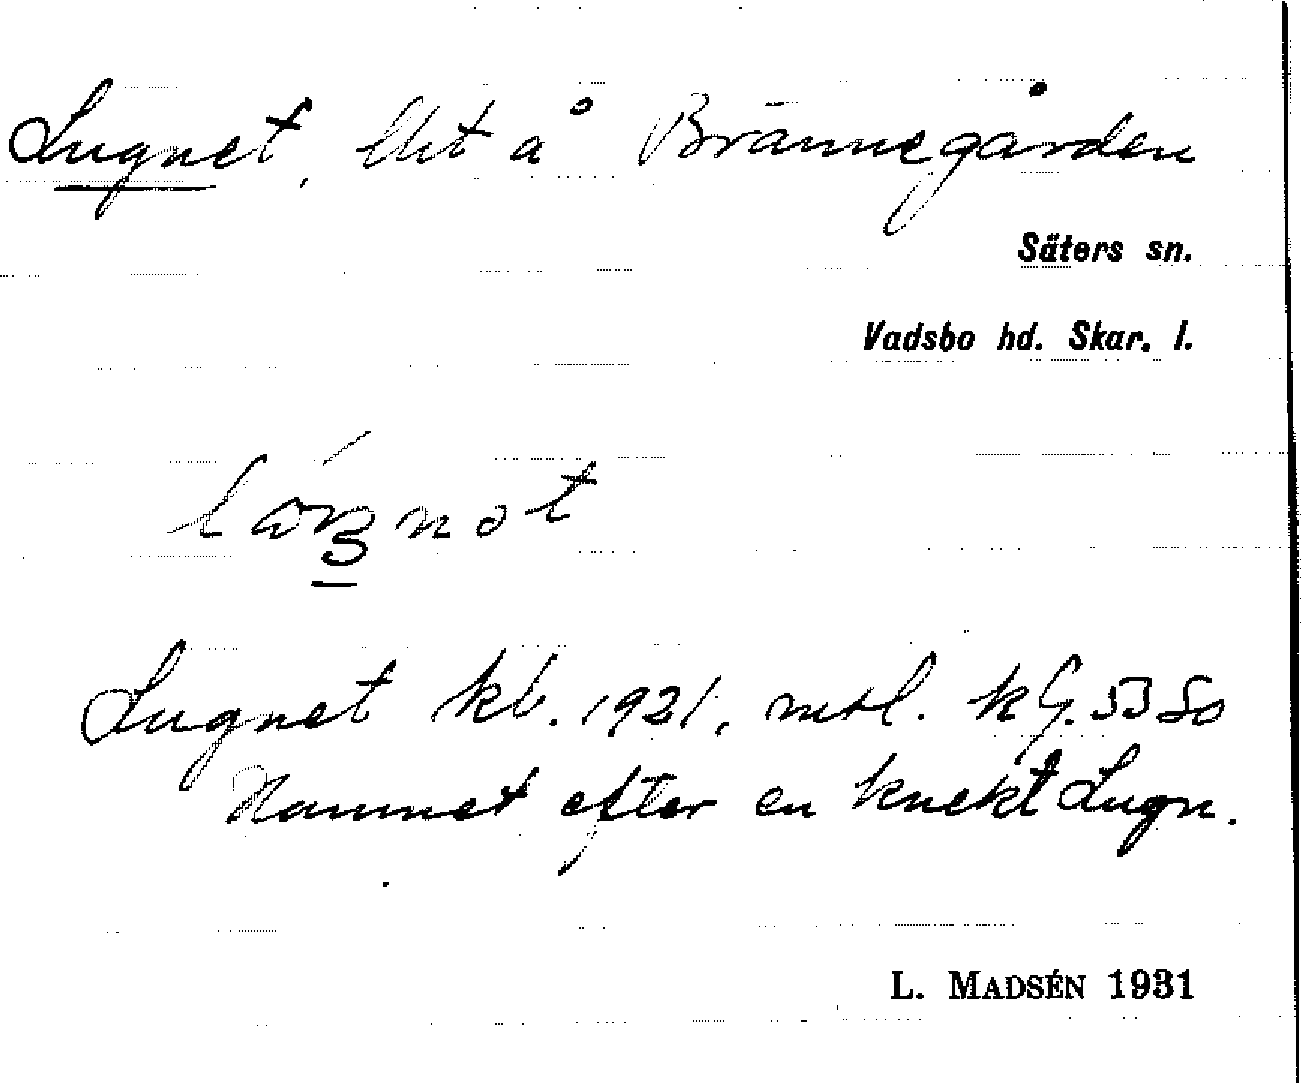 Lugnet, lht å Brännegården
Säters sn.
Vadsbo hd. Skar. l.
Lugnet kb. 1921, mtl. kG. 53 50
Namnet efter en knekt Lugn.
L. MADSÉN 1931